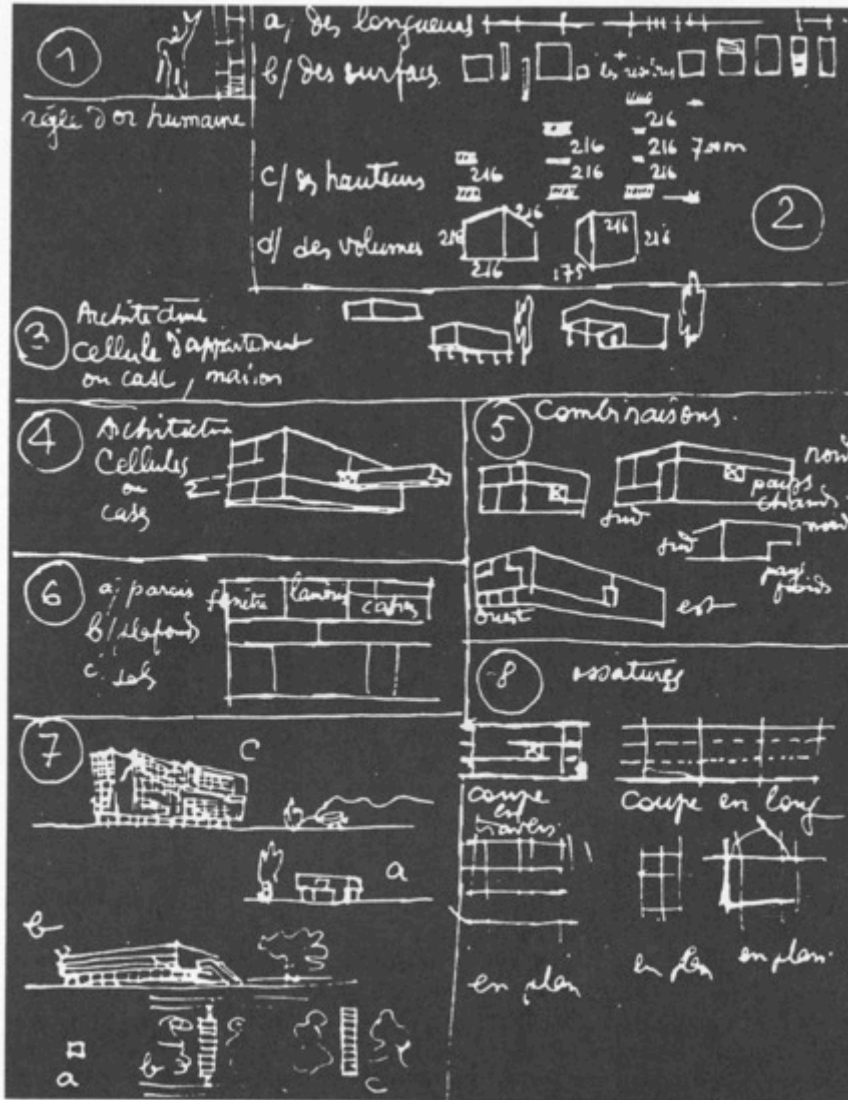 1
règle d'or humaine
a, des longueurs
b/ des surfaces
c/ des hauteurs
216
216
216
216
216
216
700 m
d/ des volumes
216
216
216
216
216
175
2
3
cellule d'appartement
ou case, maison
4
Cellules
ou
cases
5
Combinaisons.
nord
pays
chauds
sud
nord
sud
pays
froids
ouest
est
6
a, parois
b/ plafonds
c. sols
fenêtre
7
C
a
b
a
b
C
8
ossatures
coupe
en
travers
coupe en long
en plan
en plan
en plan.